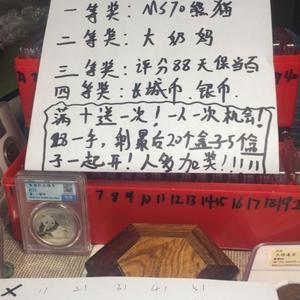 一等奖：MS70熊猫
二等奖：大奶妈
三等奖：评分88天保当百
四等奖：长城币 银币
满十送一次！一人一次机会！
一手，剩最后20个盒子5个盒
子一起开！人多加奖！！！！！
7 8 9 10 11 12 13 14 15 16 17 18 19 20
X 11 21 31 41 51